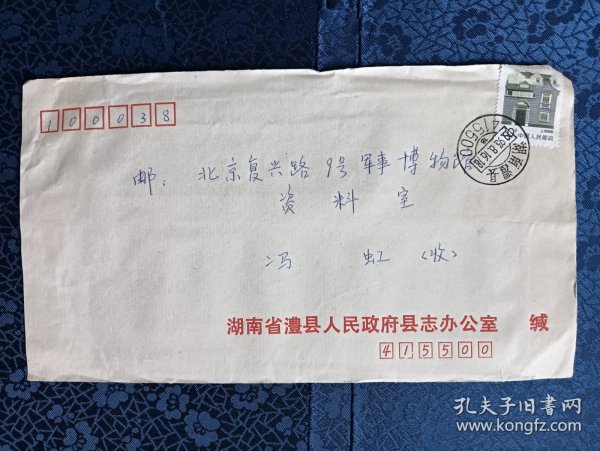 100038
邮：北京复兴路9号军事博物馆
资料室
冯虹（收）
湖南省澧县人民政府县志办公室 缄
415500
中国人民邮政
湖南澧县
415500
孔夫子旧书网
www.kongfz.com